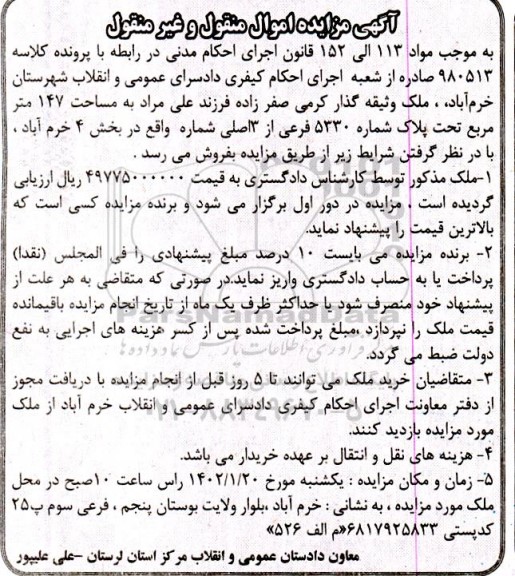 آگهی مزایده اموال منقول و غیر منقول
به موجب مواد ۱۱۳ الی ۱۵۲ قانون اجرای احکام مدنی در رابطه با پرونده کلاسه
۹۸۰۵۱۳ صادره از شعبه اجرای احکام کیفری دادسرای عمومی و انقلاب شهرستان
خرم‌آباد، ، ملک وثیقه گذار کرمی صفر زاده فرزند علی مراد به مساحت ۱۴۷ متر
مربع تحت پلاک شماره ۵۳۳۰ فرعی از ۳اصلی شماره واقع در بخش ۴ خرم آباد ،
با در نظر گرفتن شرایط زیر از طریق مزایده بفروش می رسد .
۱-ملک مذکور توسط کارشناس دادگستری به قیمت ۴۹۷۷۵۰۰۰۰۰۰ ریال ارزیابی
گردیده است ، مزایده در دور اول برگزار می شود و برنده مزایده کسی است که
بالاترین قیمت را پیشنهاد نماید.
۲- برنده مزایده می بایست ۱۰ درصد مبلغ پیشنهادی را فی المجلس (نقدا)
پرداخت یا به حساب دادگستری واریز نماید.در صورتی که متقاضی به هر علت از
پیشنهاد خود منصرف شود یا حداکثر ظرف یک ماه از تاریخ انجام مزایده باقیمانده
قیمت ملک را نپردازد ،مبلغ پرداخت شده پس از کسر هزینه های اجرایی به نفع
دولت ضبط می گردد.
۳- متقاضیان خرید ملک می توانند تا ۵ روز قبل از انجام مزایده با دریافت مجوز
از دفتر معاونت اجرای احکام کیفری دادسرای عمومی و انقلاب خرم آباد از ملک
مورد مزایده بازدید کنند.
۴- هزینه های نقل و انتقال بر عهده خریدار می باشد.
۵- زمان و مکان مزایده : یکشنبه مورخ ۱۴۰۲/۱/۲۰ راس ساعت ۱۰صبح در محل
ملک مورد مزایده ، به نشانی : خرم آباد ،بلوار ولایت بوستان پنجم ، فرعی سوم پ۲۵
کدپستی ۶۸۱۷۹۲۵۸۳۳«م الف ۵۲۶»
معاون دادستان عمومی و انقلاب مرکز استان لرستان -علی علیپور
ParsNamadData